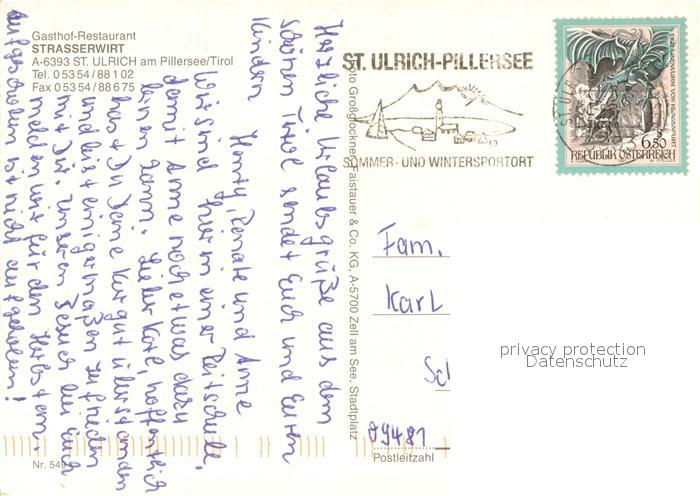 Gasthof-Restaurant
STRASSERWIRT
A-6393 ST. ULRICH am Pillersee/Tirol
Tel. 0 53 54 / 88 1 02
Fax 0 53 54 / 88 6 75
Herzliche Urlaubsgrüße aus dem
schönen Tirol sendet Euch und Euren
Kindern
Renate und Anne
Wir sind hier in einer Reitschule,
damit Anne noch etwas dazu
lernen kann. Lieber Karl, hoffentlich
hast Du Deine Kur gut überstanden
und bist einigermaßen zufrieden
mit Dir. Unseren Besuch bei Euch
melden wir für den Herbst an.
aufgeschoben ist nicht aufgehoben!
Nr. 549
Foto Großglockner, Faistauer & Co. KG, A-5700 Zell am See, Stadtplatz
ST. ULRICH-PILLERSEE
SOMMER- UND WINTERSPORTORT
ST. UL
DER LINDWURM VON KLAGENFURT
S
6.50
REPUBLIK ÖSTERREICH
Fam.
Karl
Sc
09481
Postleitzahl
privacy protection
Datenschutz